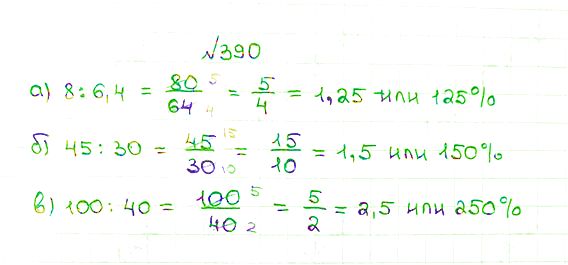 №390
а) 8 : 6,4 = 80/64 5 4 = 5/4 = 1,25 или 125%
б) 45 : 30 = 45/30 15 10 = 15/10 = 1,5 или 150%
в) 100 : 40 = 100/40 5 2 = 5/2 = 2,5 или 250%